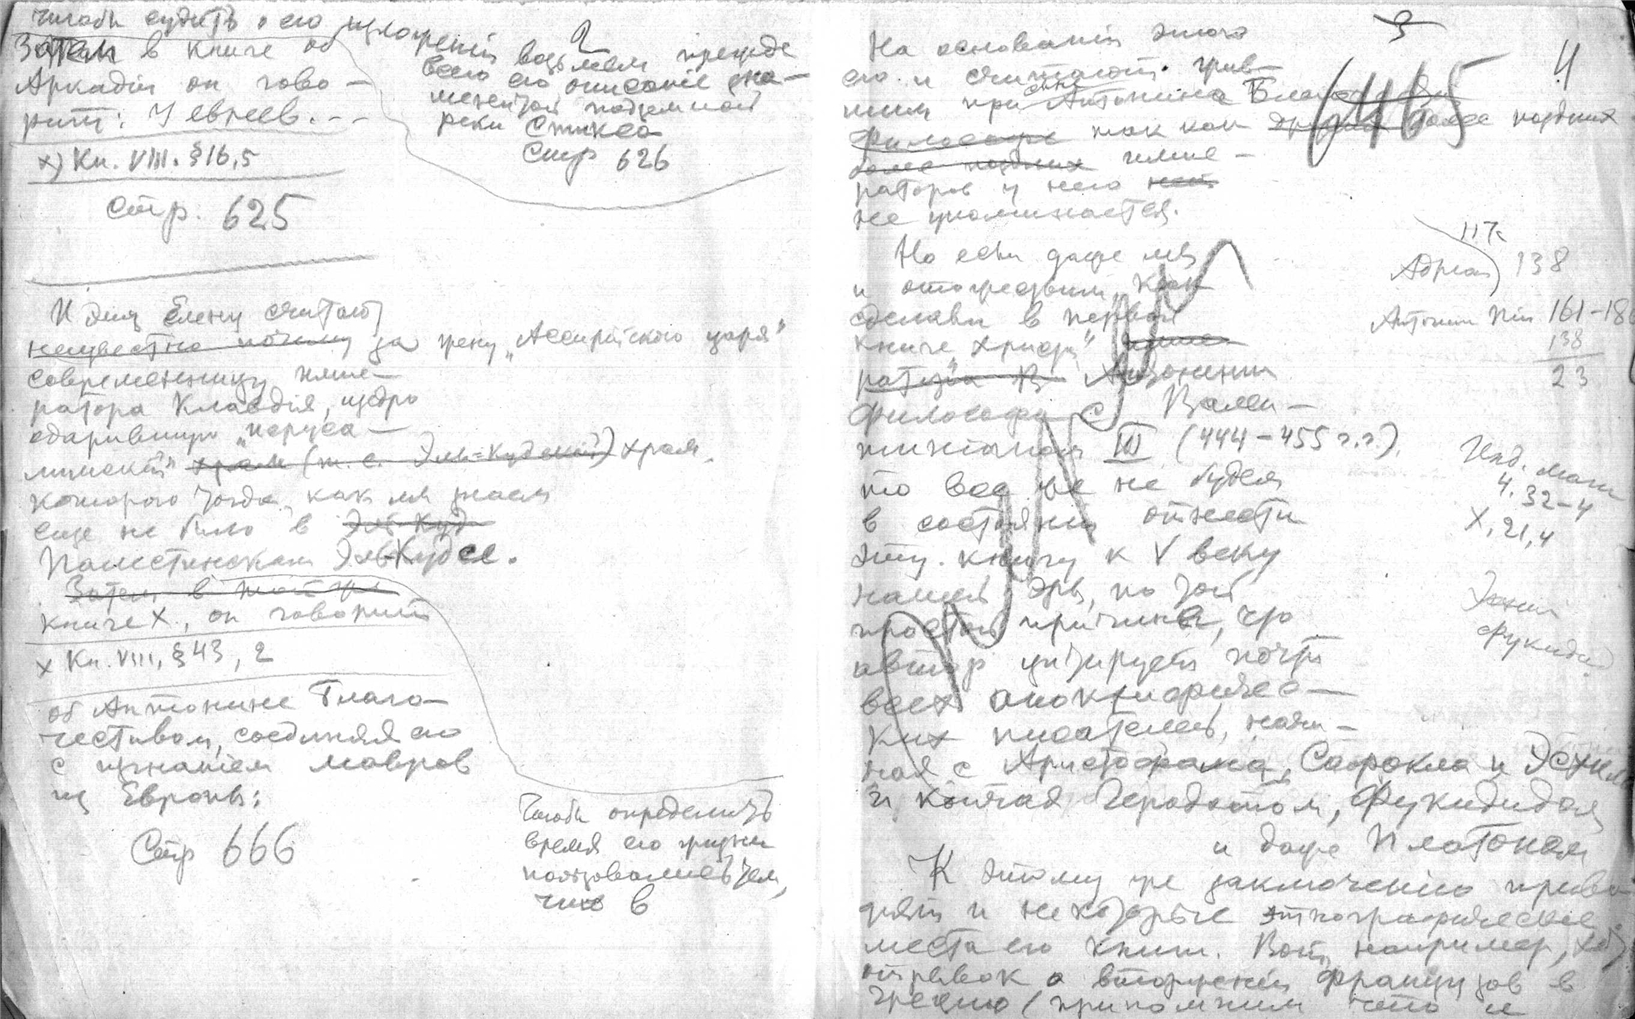 чтобы судить о его изложенiи возьмем прежде
всего его описанiе зна-
менитой подземной
реки Стикса
Стр 626
2
Затем в книге об
Аркадiи он гово-
рит: У евреев...
х) Кн. VIII. § 16,5
Стр. 625
И эту Елену считают
неизвестно почему за жену „Ассирiйского царя"
современницу импе-
ратора Клавдiя, щедро
одарившую „Iеруса-
лимскiй" храм (т.е. Эль-Кудскiй) храм.
которого тогда, как мы знаем
еще не было в Эль-Куд
Палестинском Эль-Кудсе.
Затем в той же
книге X, он говорит
х Кн. VIII, § 43, 2
об Антонине Благо-
честивом, соединяя его
с изгнанiем мавров
из Европы:
Стр 666
Чтобы определить
время его жизни
пользовались тем,
что в
3
4
6465
На основанiи этого
его и считают жив-
шим при Антонина
Философе так как более поздних
более поздних импе-
раторов у него нет
не упоминается.
Но если даже мы
и отожествим, как
сделали в первой
книге „Христа"
ратора Антонина
философа с Вален-
тинiаном III (444-455 г.г.),
то все же не будем
в состоянiи отнести
эту книгу к V веку
нашей эры, по той
простой причине, что
автор цитирует почти
всех апокрифичес-
ких писателей, начи-
ная с Аристофана, Софокла и Эсхила
и кончая Геродотом, Фукидидом
и даже Платоном
К этому же заключенiю приво-
дят и некоторые этнографическiе
места его книги. Вот, например,
отрывок о вторженiи „французов" в
Грецiю (припомним что и
117
Адриан 138
Антонин Пiй 161-180
138
23
4. 32-4
X, 21, 4
Фукидид